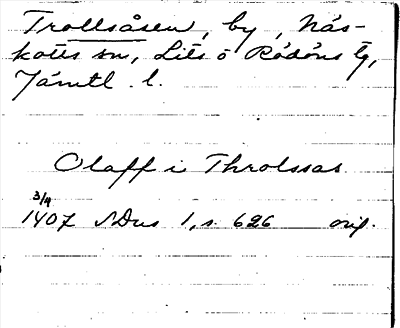 Trollsåsen, by, Näs-
kotts sn, Lits o Rödöns tg,
Jämtl. l.
Olaff i Throlssas
3/4
1407 SDns 1, s. 626 orig.